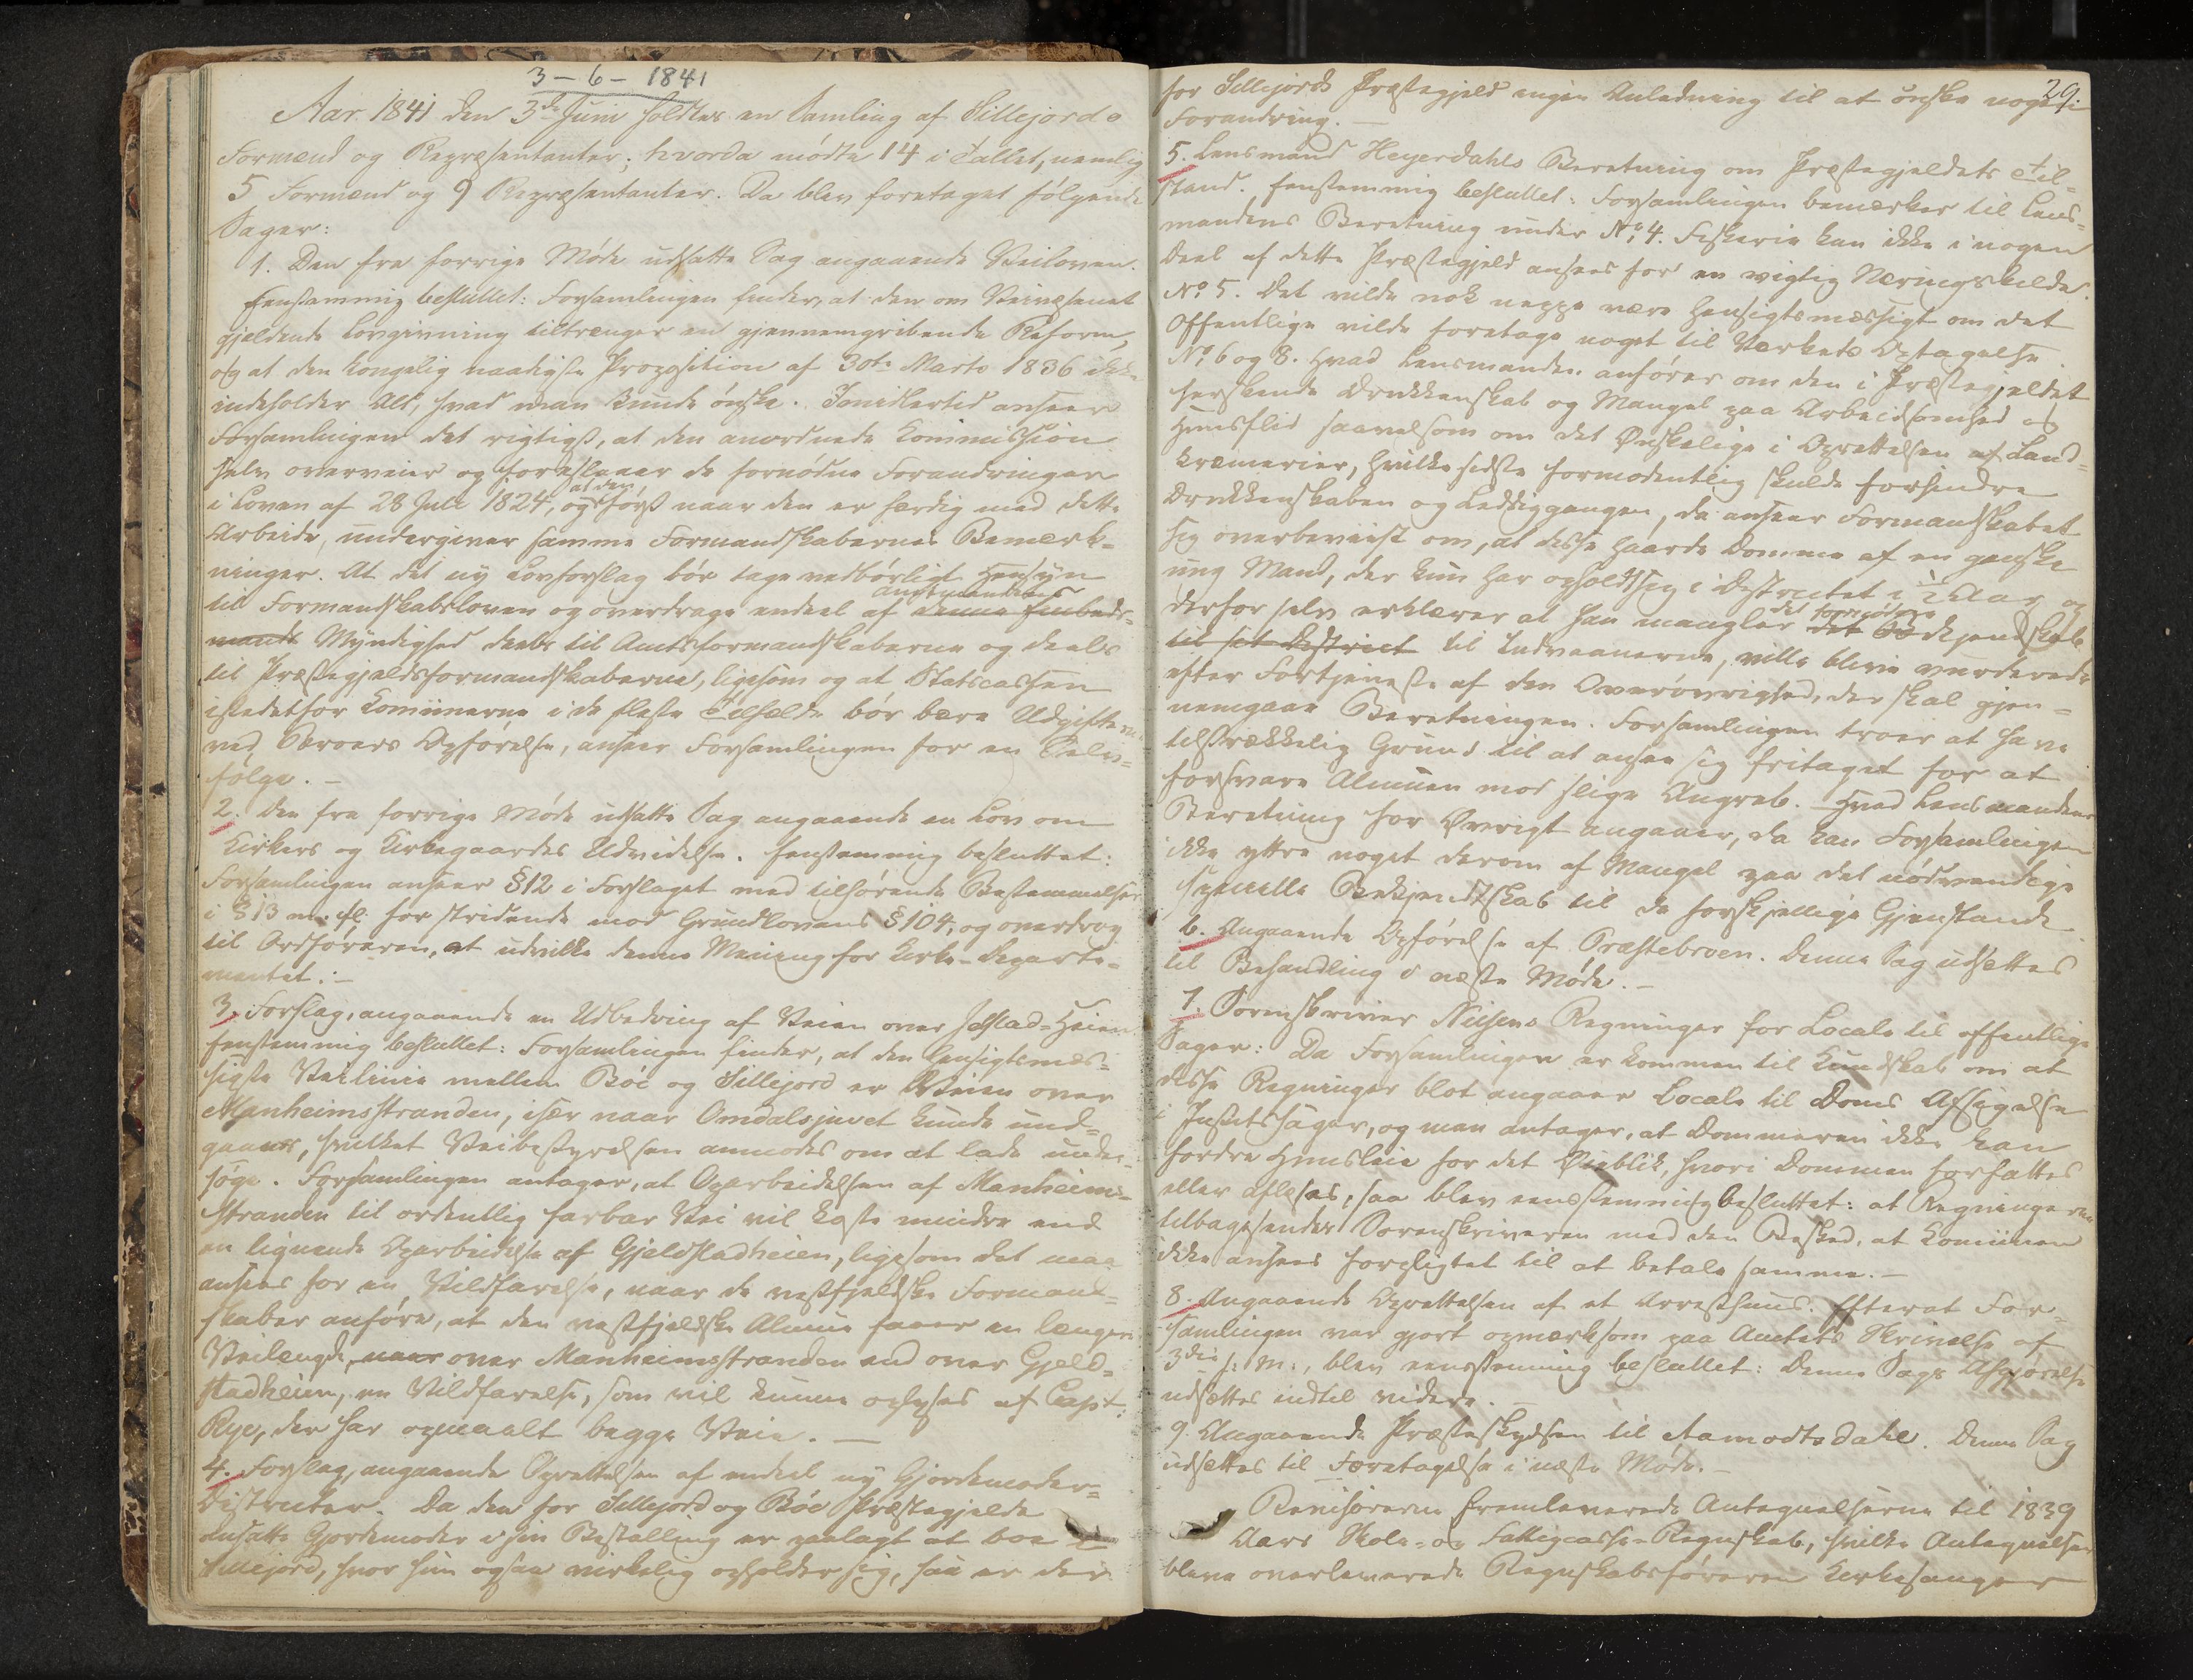 3-6-1841
Aar 1841 den 3de Juni holdtes en Samling af Sillejords
Formænd og Repræsentanter; hvorda mødte 14 i Tallet, nemlig
5 Formænd og 9 Repræsentanter. Da blev foretaget følgende
Sager:
1. Den fra forrige Møde udsatte Sag angaaende Veiloven.
Eenstemmig besluttet: Forsamlingen finder, at den om Veivæsenet
gjeldende Lovgivning tiltrænger en gjennemgribende Reform,
og at den kongelig naadigste Proposition af 30te Marts 1836 ikke
indeholder Alt, hvad man kunde ønske. Imidlertid anseer
Forsamlingen det rigtigst, at den anordnede Kommission
selv overveier og foreslaaer de fornødne Forandringer
i Loven af 28 Juli 1824, og at den først naar den er færdig med dette
Arbeide, undergiver samme Formandskabernes Bemærk-
ninger. At det ny Lovforslag bør tage vedbørligt Hensyn
til Formandskabsloven og overdrage endeel af Amtmandens denne Embeds-
mands Myndighed deels til Amtsformandskaberne og deels
til Præstegjeldsformandskaberne, ligesom og at Statscassen
istedetfor Komunerne i de fleste Tilfælde bør bære Udgifterne
ved Broers Opførelse, anseer Forsamlingen for en Selv-
følge.-
2. Den fra forrige Møde udsatte Sag angaaende en Lov om
Kirkers og Kirkegaardes Udvidelse. Eenstemmig besluttet:
Forsamlingen anseer §12 i Forslaget med tilhørende Bestemmelser
i §13 m. fl. for stridende mod Grundlovens §104, og overdrog
til Ordføreren, at udvikle denne Mening for Kirke-Departe-
mentet.-
3. Forslag, angaaende en Udbedring af Veien over Jelstad-Heien
Eenstemmig besluttet: Forsamlingen finder, at den hensigtsmæs-
sigste Veilinie mellem Bøe og Sillejord er Veien over
Manheimsstranden, især naar Omdalsjuvet kunde und-
gaaes, hvilket Veibestyrelsen anmodes om at lade under-
søge. Forsamlingen antager, at Oparbeidelsen af Manheims-
stranden til ordentlig farbar Vei vil koste mindre end
en lignende Oparbeidelse af Gjeldstadheien, ligesom det maa
ansees for en Vildfarelse, naar de vestfjeldske Formand-
skaber anføre, at den vestfjeldske Almue faaer en længere
Veilengde, naar over Manheimsstranden end over Gjeld-
stadheien, en Vildfarelse, som vil kunne oplyses af Capt:
Rye, der har opmaalt begge Veie.-
4. Forslag, angaaende Oprettelsen af endeel ny Gjordemoder-
Districter. Da den for Sillejord og Bøe Præstegjelde
ansatte Gjordemoder i sin Bestalling er paalagt at boe i
Sillejord, hvor hun ogsaa virkelig opholder sig, saa er der
29.
for Sillejords Præstegjeld ingen Anledning til at ønske nogen
Forandring.-
5. Lensmand Heyerdahls Beretning om Præstegjeldets Til-
stand. Eenstemmig besluttet: Forsamlingen bemærker til Lens-
mandens Beretning under No 4. Fiskerie kan ikke i nogen
Deel af dette Præstegjeld ansees for en vigtig Næringskilde.
No 5. Det vilde nok neppe være hensigtsmæssigt om det
Offentlige vilde foretage noget til Værkets Optagelse
No 6 og 8. Hvad Lensmanden anfører om den i Præstegjeldet
herskende Drukkenskab og Mangel paa Arbeidsomhed og
Huusflid saavelsom om det Ønskelige i Oprettelsen af Land-
kræmerier, hvilke sidste formodentlig skulde forhindre
Drukkenskaben og Leddiggangen, da anseer Formandskabet
sig overbeviist om, at disse haarde Domme af en ganske
ung Mand, der kun har opholdt sig i Districtet i 2 Aar og
derfor selv erklærer at han mangler det fornødne det Bekjendtskab
til sit District til Indvaanerne, ville blive vurderede
efter Fortjeneste af den Overøvrighed, der skal gjen-
nemgaae Beretningen. Forsamlingen troer at have
tilstrækkelig Grund til at ansee sig fritaget for at
forsvare Almuen mod slige Angreb.- Hvad Lensmandens
Beretning for Øvrigt angaaer, da kan Forsamlingen
ikke yttre noget derom af Mangel paa det nødvendige
specielle Bekjendtskab til de forskjellige Gjenstande.
6. Angaaende Opførelse af Præstebroen. Denne Sag udsettes
til Behandling i næste Møde.-
7. Sorenskriver Nielsens Regninger for Locale til offentlige
Sager: Da Forsamlingen er kommen til Kundskab om at
disse Regninger blot angaaer Locale til Doms Afsigelse
i Justitssager, og man antager, at Dommeren ikke kan
fordre Huusleie for det Øieblik, hvori Dommen forfattes
eller aflæses, saa blev eenstemmig besluttet: at Regningerne
tilbagesendes Sorenskriveren med den Besked, at Komunen
ikke ansees forpligtet til at betale samme.-
8. Angaaende Oprettelsen af et Arresthuus. Efterat For-
samlingen var gjort opmærksom paa Amtets Skrivelse af
3die f: M:, blev eenstemmig besluttet: Denne Sags Afgjørelse
udsættes indtil videre.-
9. Angaaende Præsteskydsen til Aamodtsdahl. Denne Sag
udsættes til Foretagelse i næste Møde.-
Revisorerne fremleverede Antegnelserne til 1839
Aars Skole- og Fattigcasse-Regnskab, hvilke Antegnelser
bleve overleverede Regnskabsføreren Kirkesanger